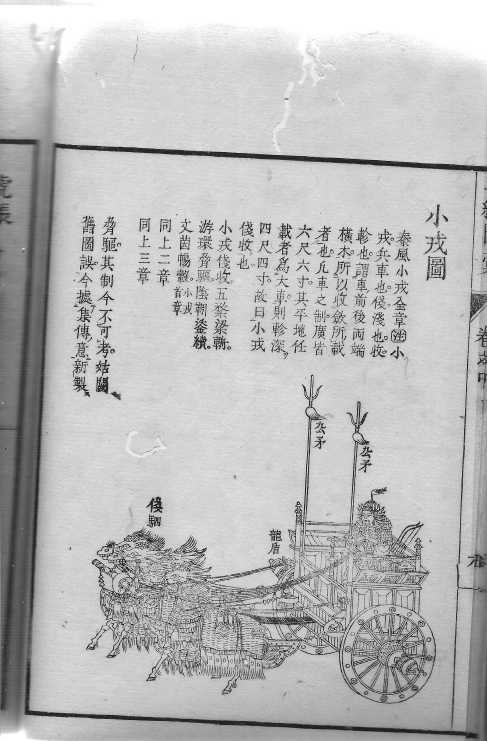 小戎圖
秦風小戎全章述小
戎兵車也俴淺也收
軫也謂車前後兩端
橫木所以收斂所載
者也兵車之制廣皆
六尺六寸其平地任
載者爲大車則軫深
四尺四寸故曰小戎
俴收也
小戎俴收五楘梁輈
游環脅驅陰靷鋈續
文茵暢轂小戎首章
同上二章
同上三章
脅驅其制今不可考姑闕
舊圖誤今據集傳意新製
厹矛
厹矛
龍盾
俴駟